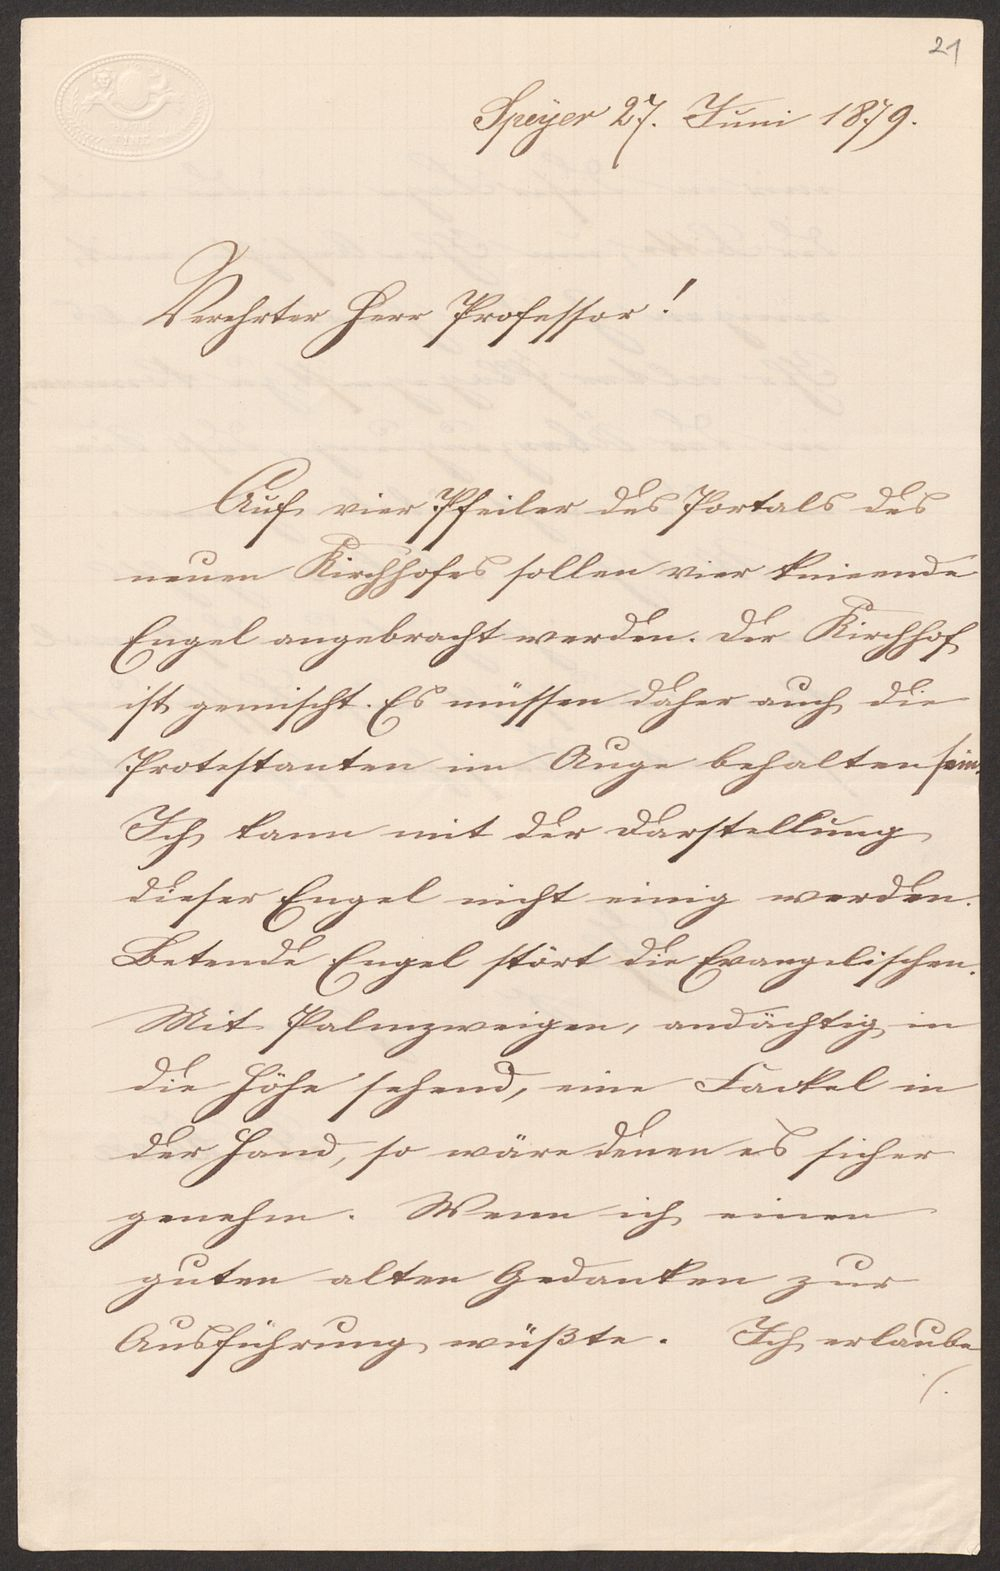 21
Speyer 27. Juni 1879.
Verehrter Herr Professor!
Auf vier Pfeiler des Portals des
neuen Kirchhofes sollen vier knieende
Engel angebracht werden. Der Kirchhof
ist gemischt. Es müssen daher auch die
Protestanten im Auge behalten sein.
Ich kann mit der Darstellung
dieser Engel nicht einig werden.
Betende Engel stört die Evangelischen.
Mit Palmzweigen, andächtig in
die Höhe sehend, eine Fackel in
der Hand, so wäre denen es sicher
genehm. Wenn ich einen
guten alten Gedanken zur
Ausführung wüßte. Ich erlaube
./.